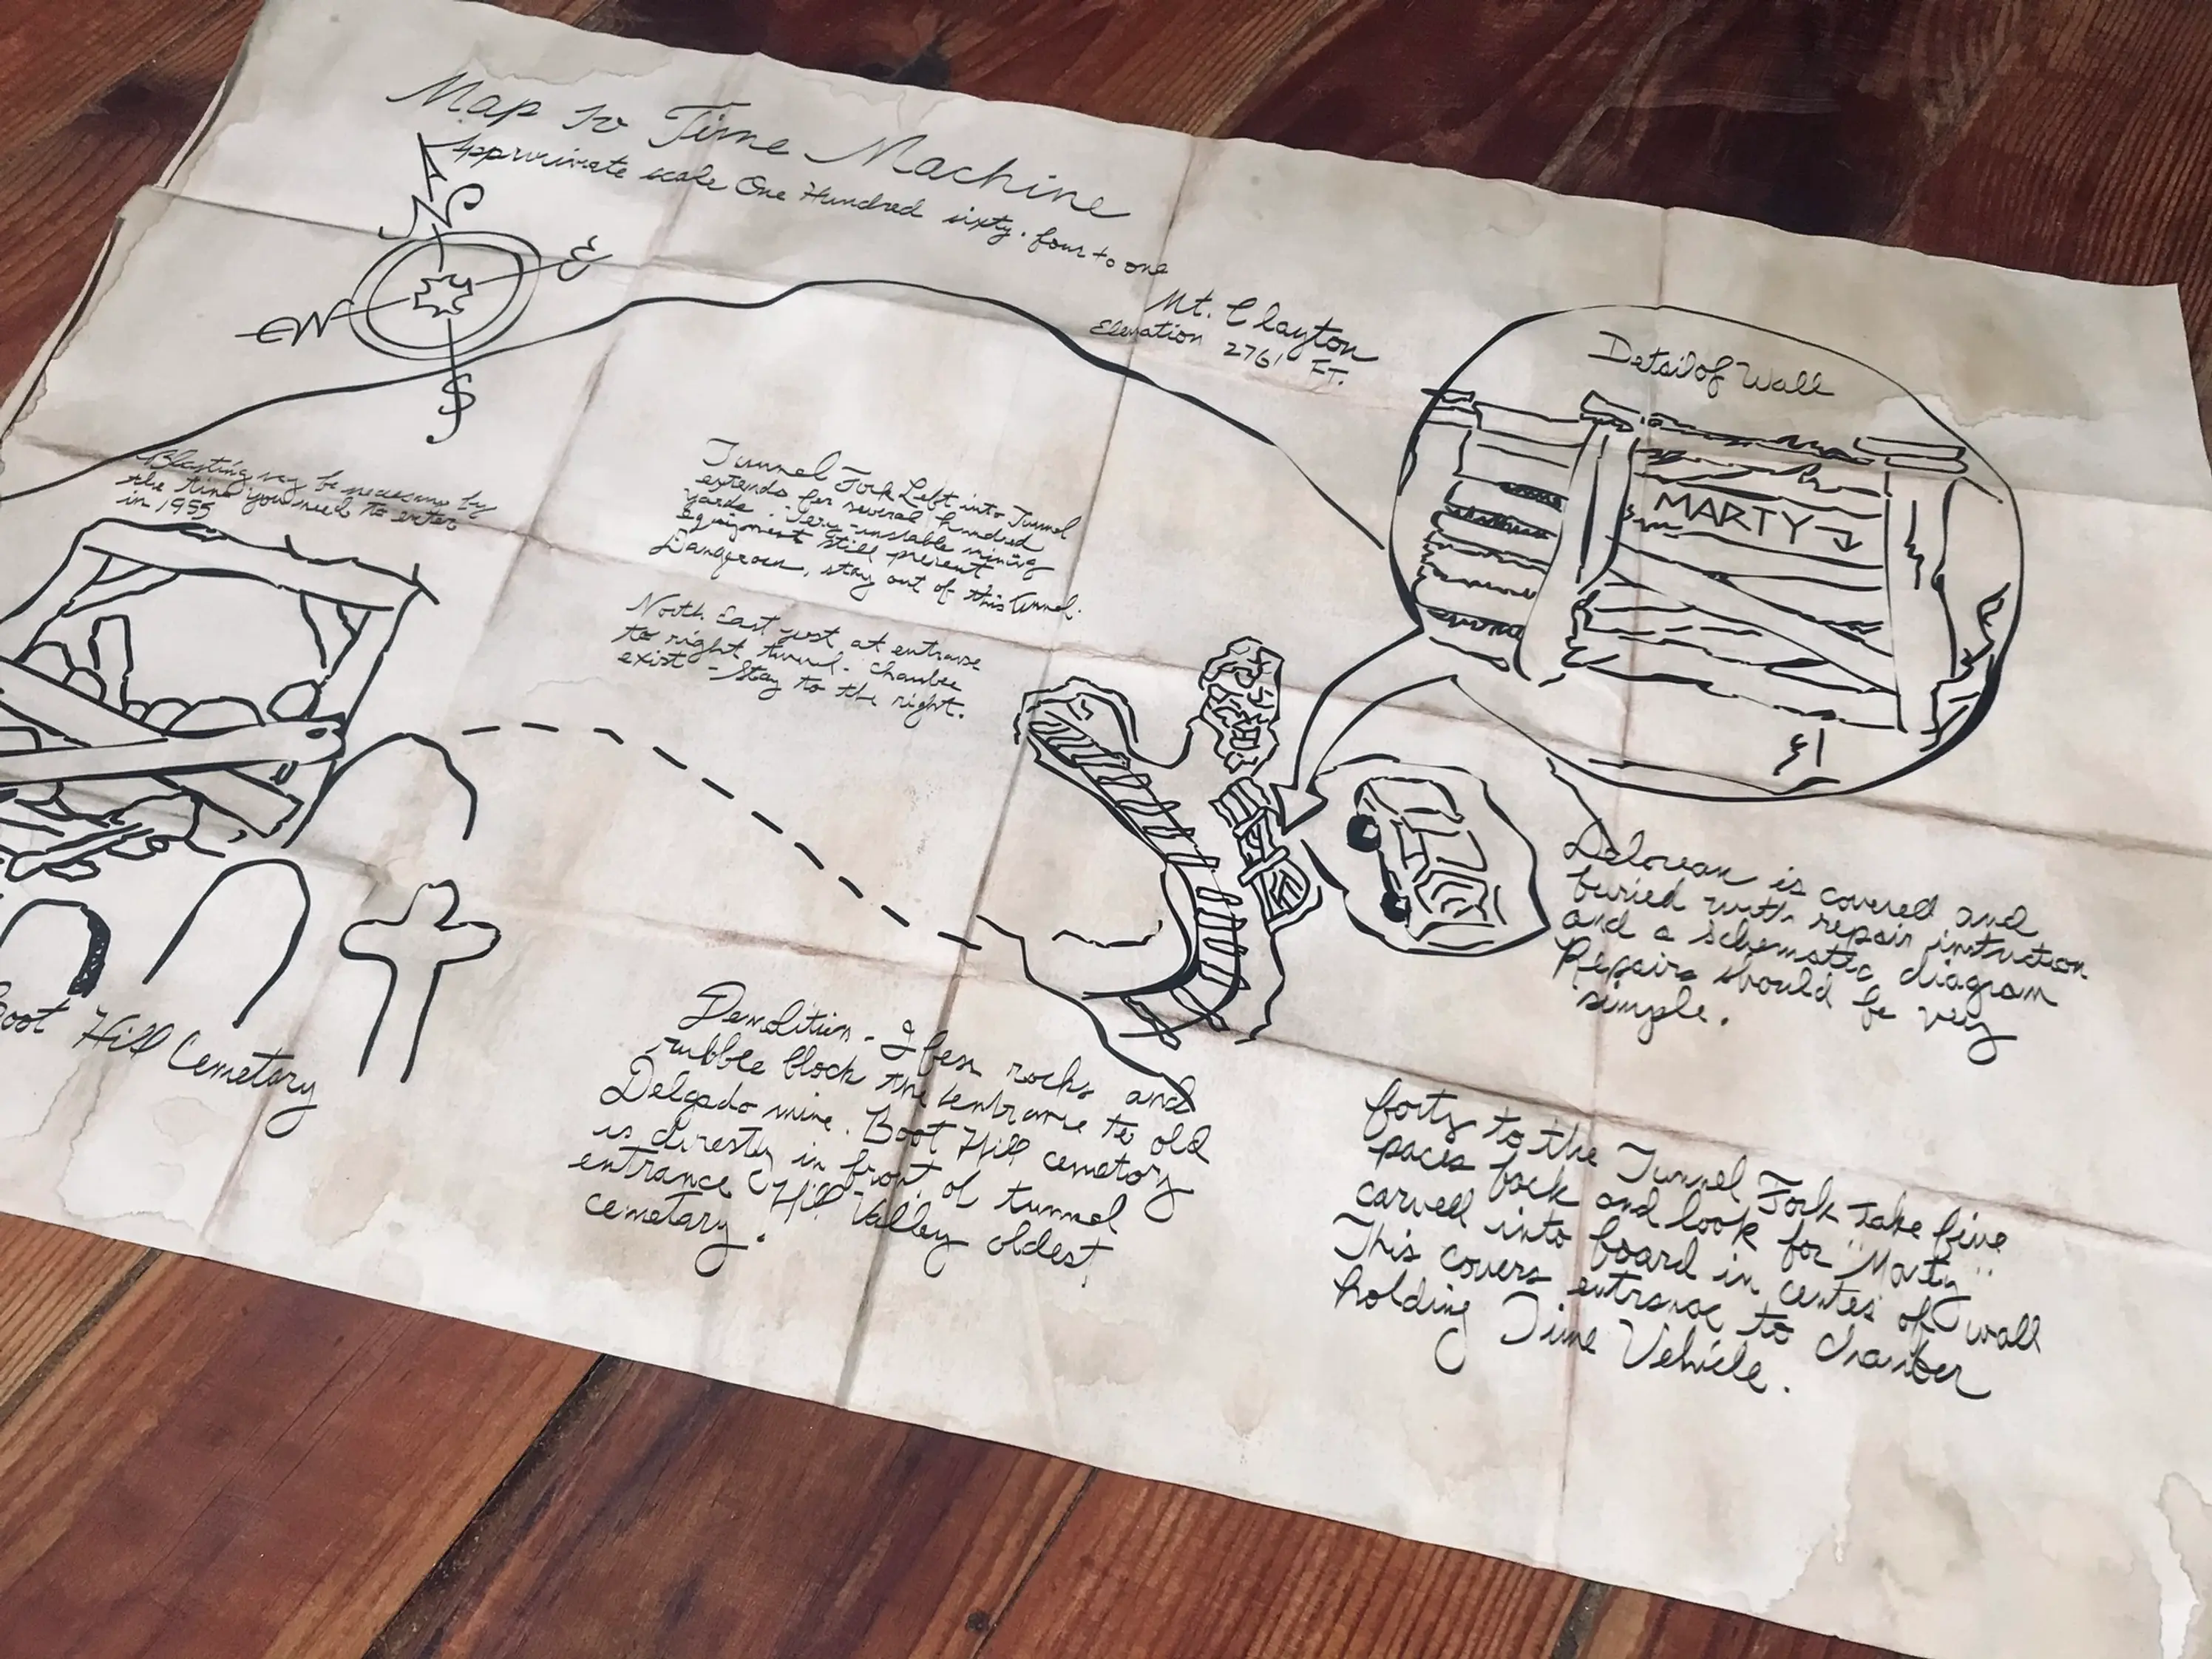 Map to Time Machine
Approximate scale One Hundred sixty-four to one
N
E
W
S
Mt. Clayton
Elevation 2761 FT.
Detail of Wall
MARTY
Blasting may be necessary by
the time you need to enter
in 1955
Tunnel Fork Left into Tunnel
extends for several hundred
yards. Very unstable mining
Equipment still present
Dangerous, stay out of this tunnel.
North East just at entrance
to right tunnel. chamber
exist - Stay to the right.
Delorean is covered and
buried with repair instruction
and a schematic diagram
Repairs should be very
simple.
Boot Hill Cemetary
Demolition - I fear rocks and
rubble block the entrance to old
Delgado mine. Boot Hill cemetory
is directly in front of tunnel
entrance (Hill Valley oldest
cemetary.
forty to the Tunnel Fork Take five
paces back and look for "Marty"
carved into board in center of wall
This covers entrance to chamber
holding Time Vehicle.